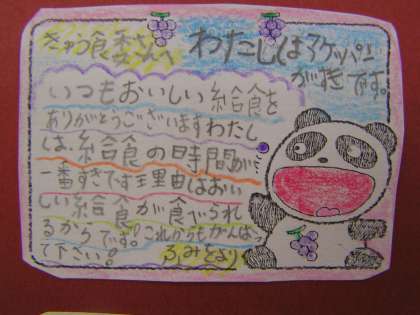 きゅう食委さんへ
わたしはアゲッパン
がすきです。
いつもおいしい給食を
ありがとうございますわたし
は、給食の時間が
一番すきです理由はおい
しい給食が食べられ
るからです。これからもがんばっ
て下さい。
ふみとより